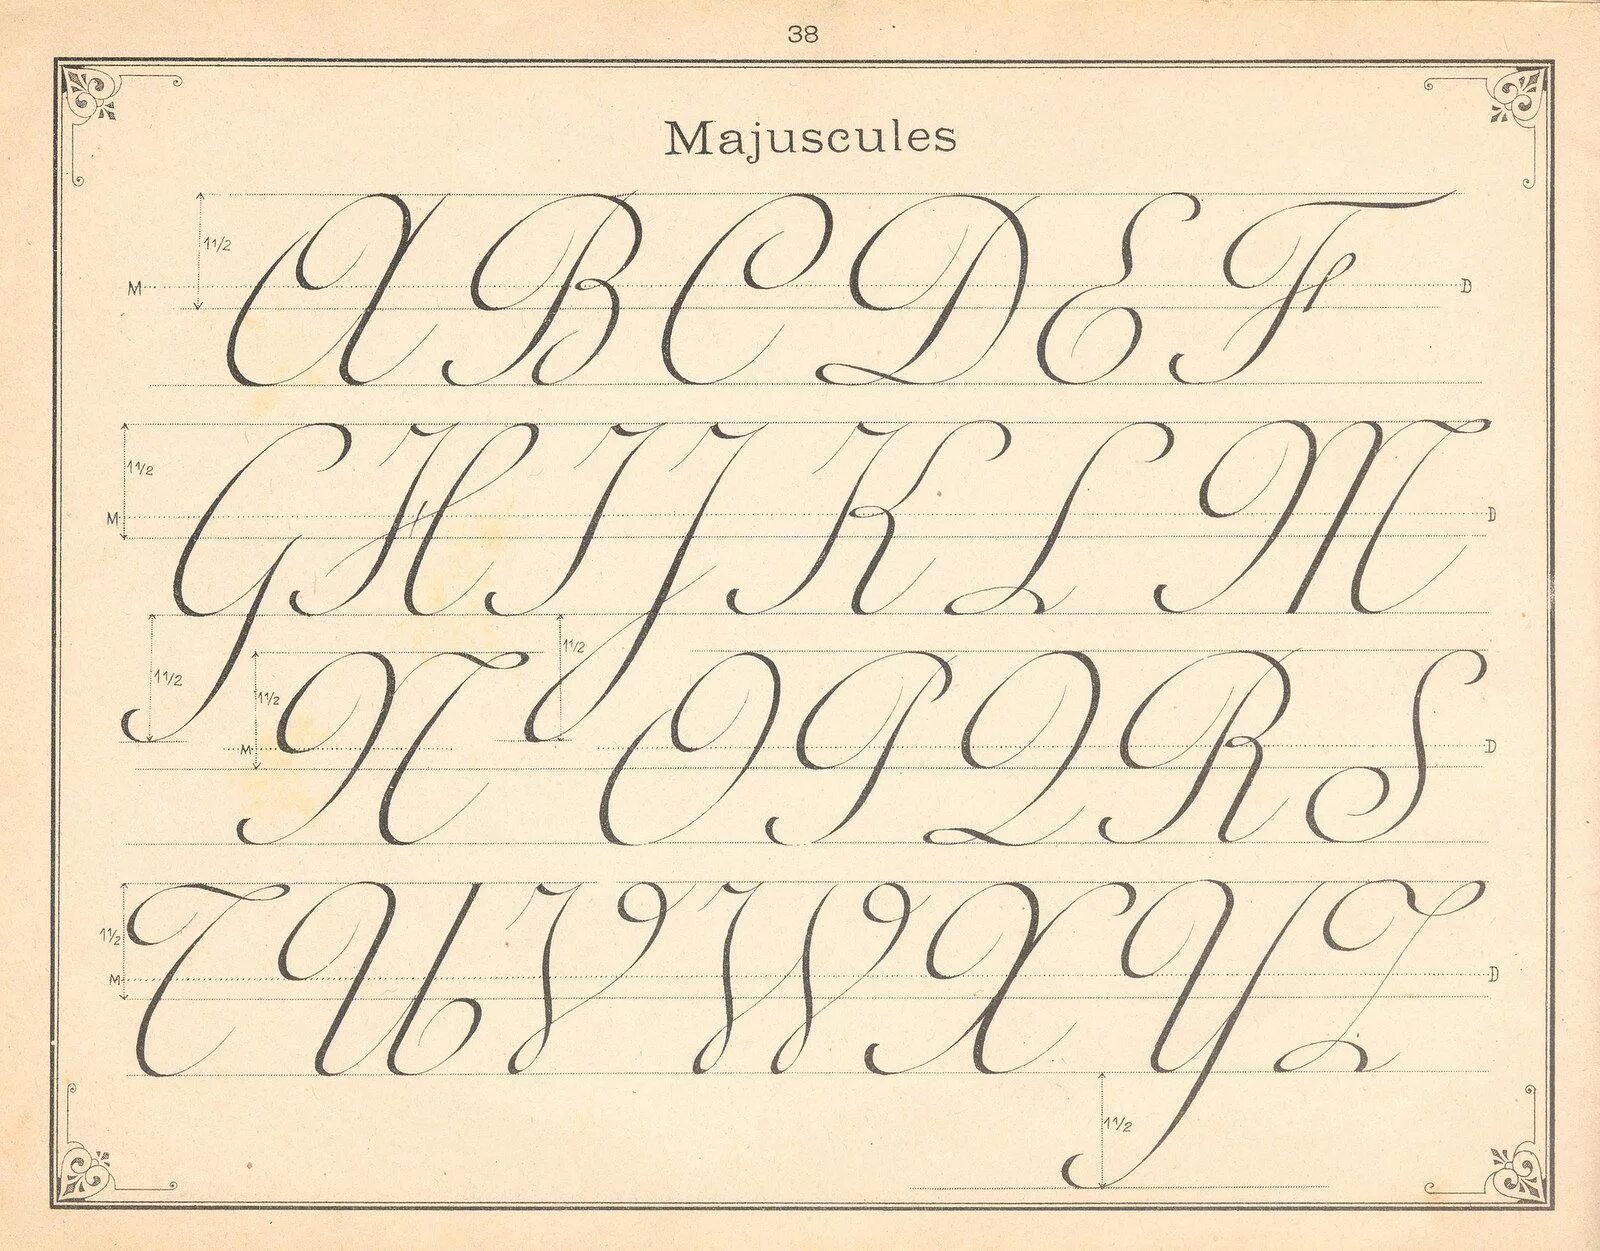 38
Majuscules
1 1/2
M A B C D E F D
1 1/2
M G H I J K L M D
1 1/2 1 1/2 1 1/2
M N O P Q R S D
1 1/2
M T U V W X Y Z D
1 1/2